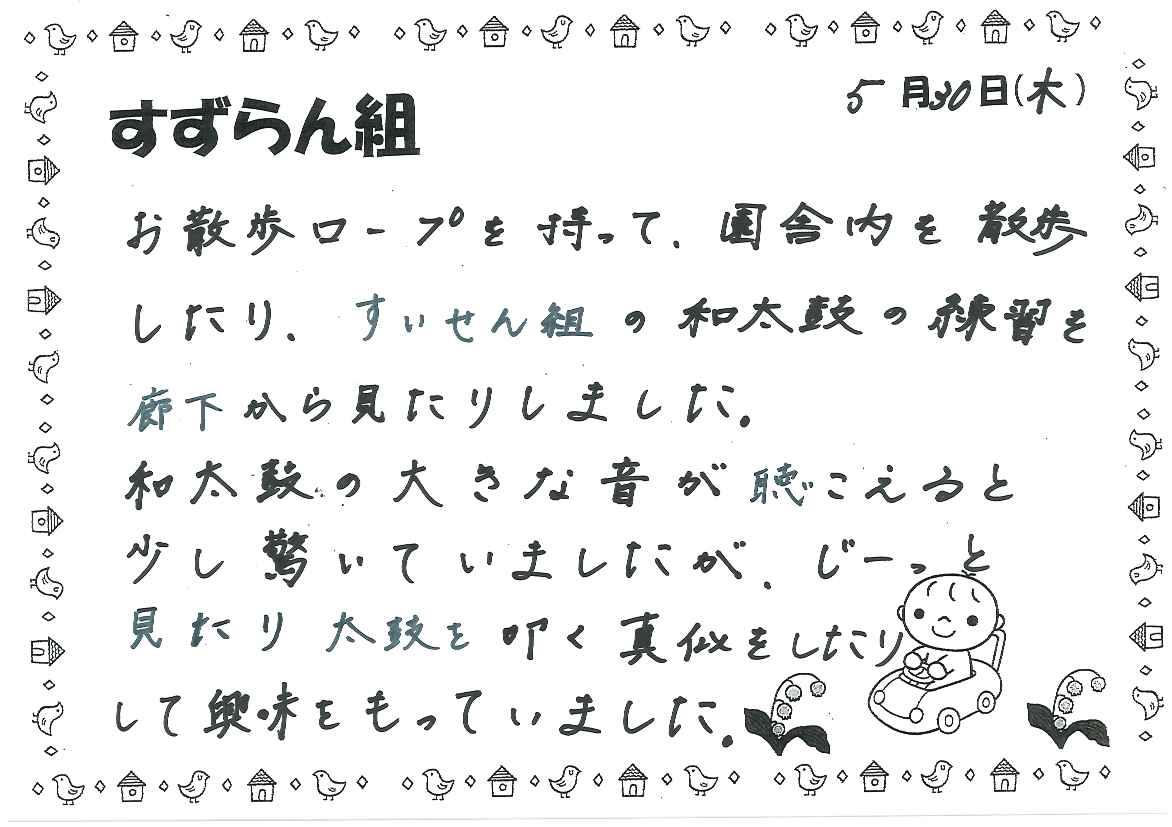 5月30日(木)
すずらん組
お散歩ロープを持って、園舎内を散歩
したり、すいせん組の和太鼓の練習を
廊下から見たりしました。
和太鼓の大きな音が聴こえると
少し驚いていましたが、じーっと
見たり太鼓を叩く真似をしたり
して興味をもっていました。